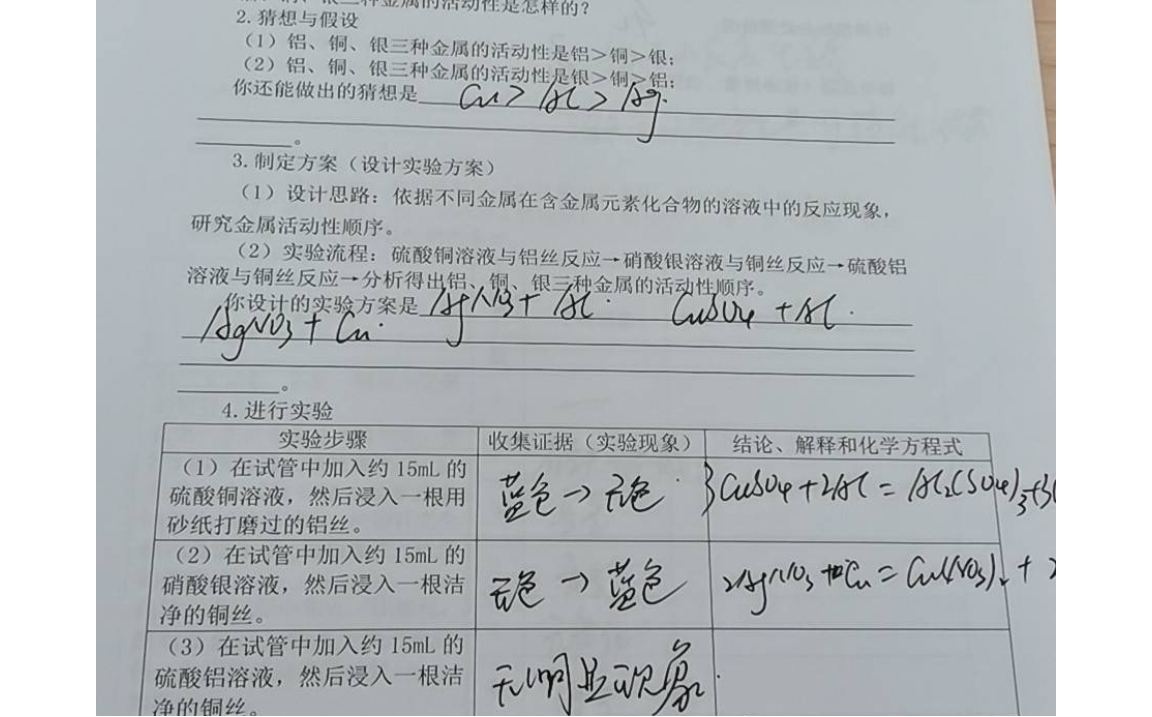 铝、铜、银三种金属的活动性是怎样的？
2.猜想与假设
（1）铝、铜、银三种金属的活动性是铝>铜>银；
（2）铝、铜、银三种金属的活动性是银>铜>铝；
你还能做出的猜想是 Cu > Al > Ag.
。
3.制定方案（设计实验方案）
（1）设计思路：依据不同金属在含金属元素化合物的溶液中的反应现象，
研究金属活动性顺序。
（2）实验流程：硫酸铜溶液与铝丝反应→硝酸银溶液与铜丝反应→硫酸铝
溶液与铜丝反应→分析得出铝、铜、银三种金属的活动性顺序。
你设计的实验方案是 AgNO3 + Al. CuSO4 + Al.
AgNO3 + Cu.
。
4.进行实验
实验步骤 收集证据（实验现象） 结论、解释和化学方程式
（1）在试管中加入约 15mL 的
硫酸铜溶液，然后浸入一根用
砂纸打磨过的铝丝。
蓝色→无色. 3CuSO4 + 2Al = Al2(SO4)3 + 3
（2）在试管中加入约 15mL 的
硝酸银溶液，然后浸入一根洁
净的铜丝。
无色→蓝色 2AgNO3 + Cu = Cu(NO3)2 + 2
（3）在试管中加入约 15mL 的
硫酸铝溶液，然后浸入一根洁
净的铜丝。
无明显现象.